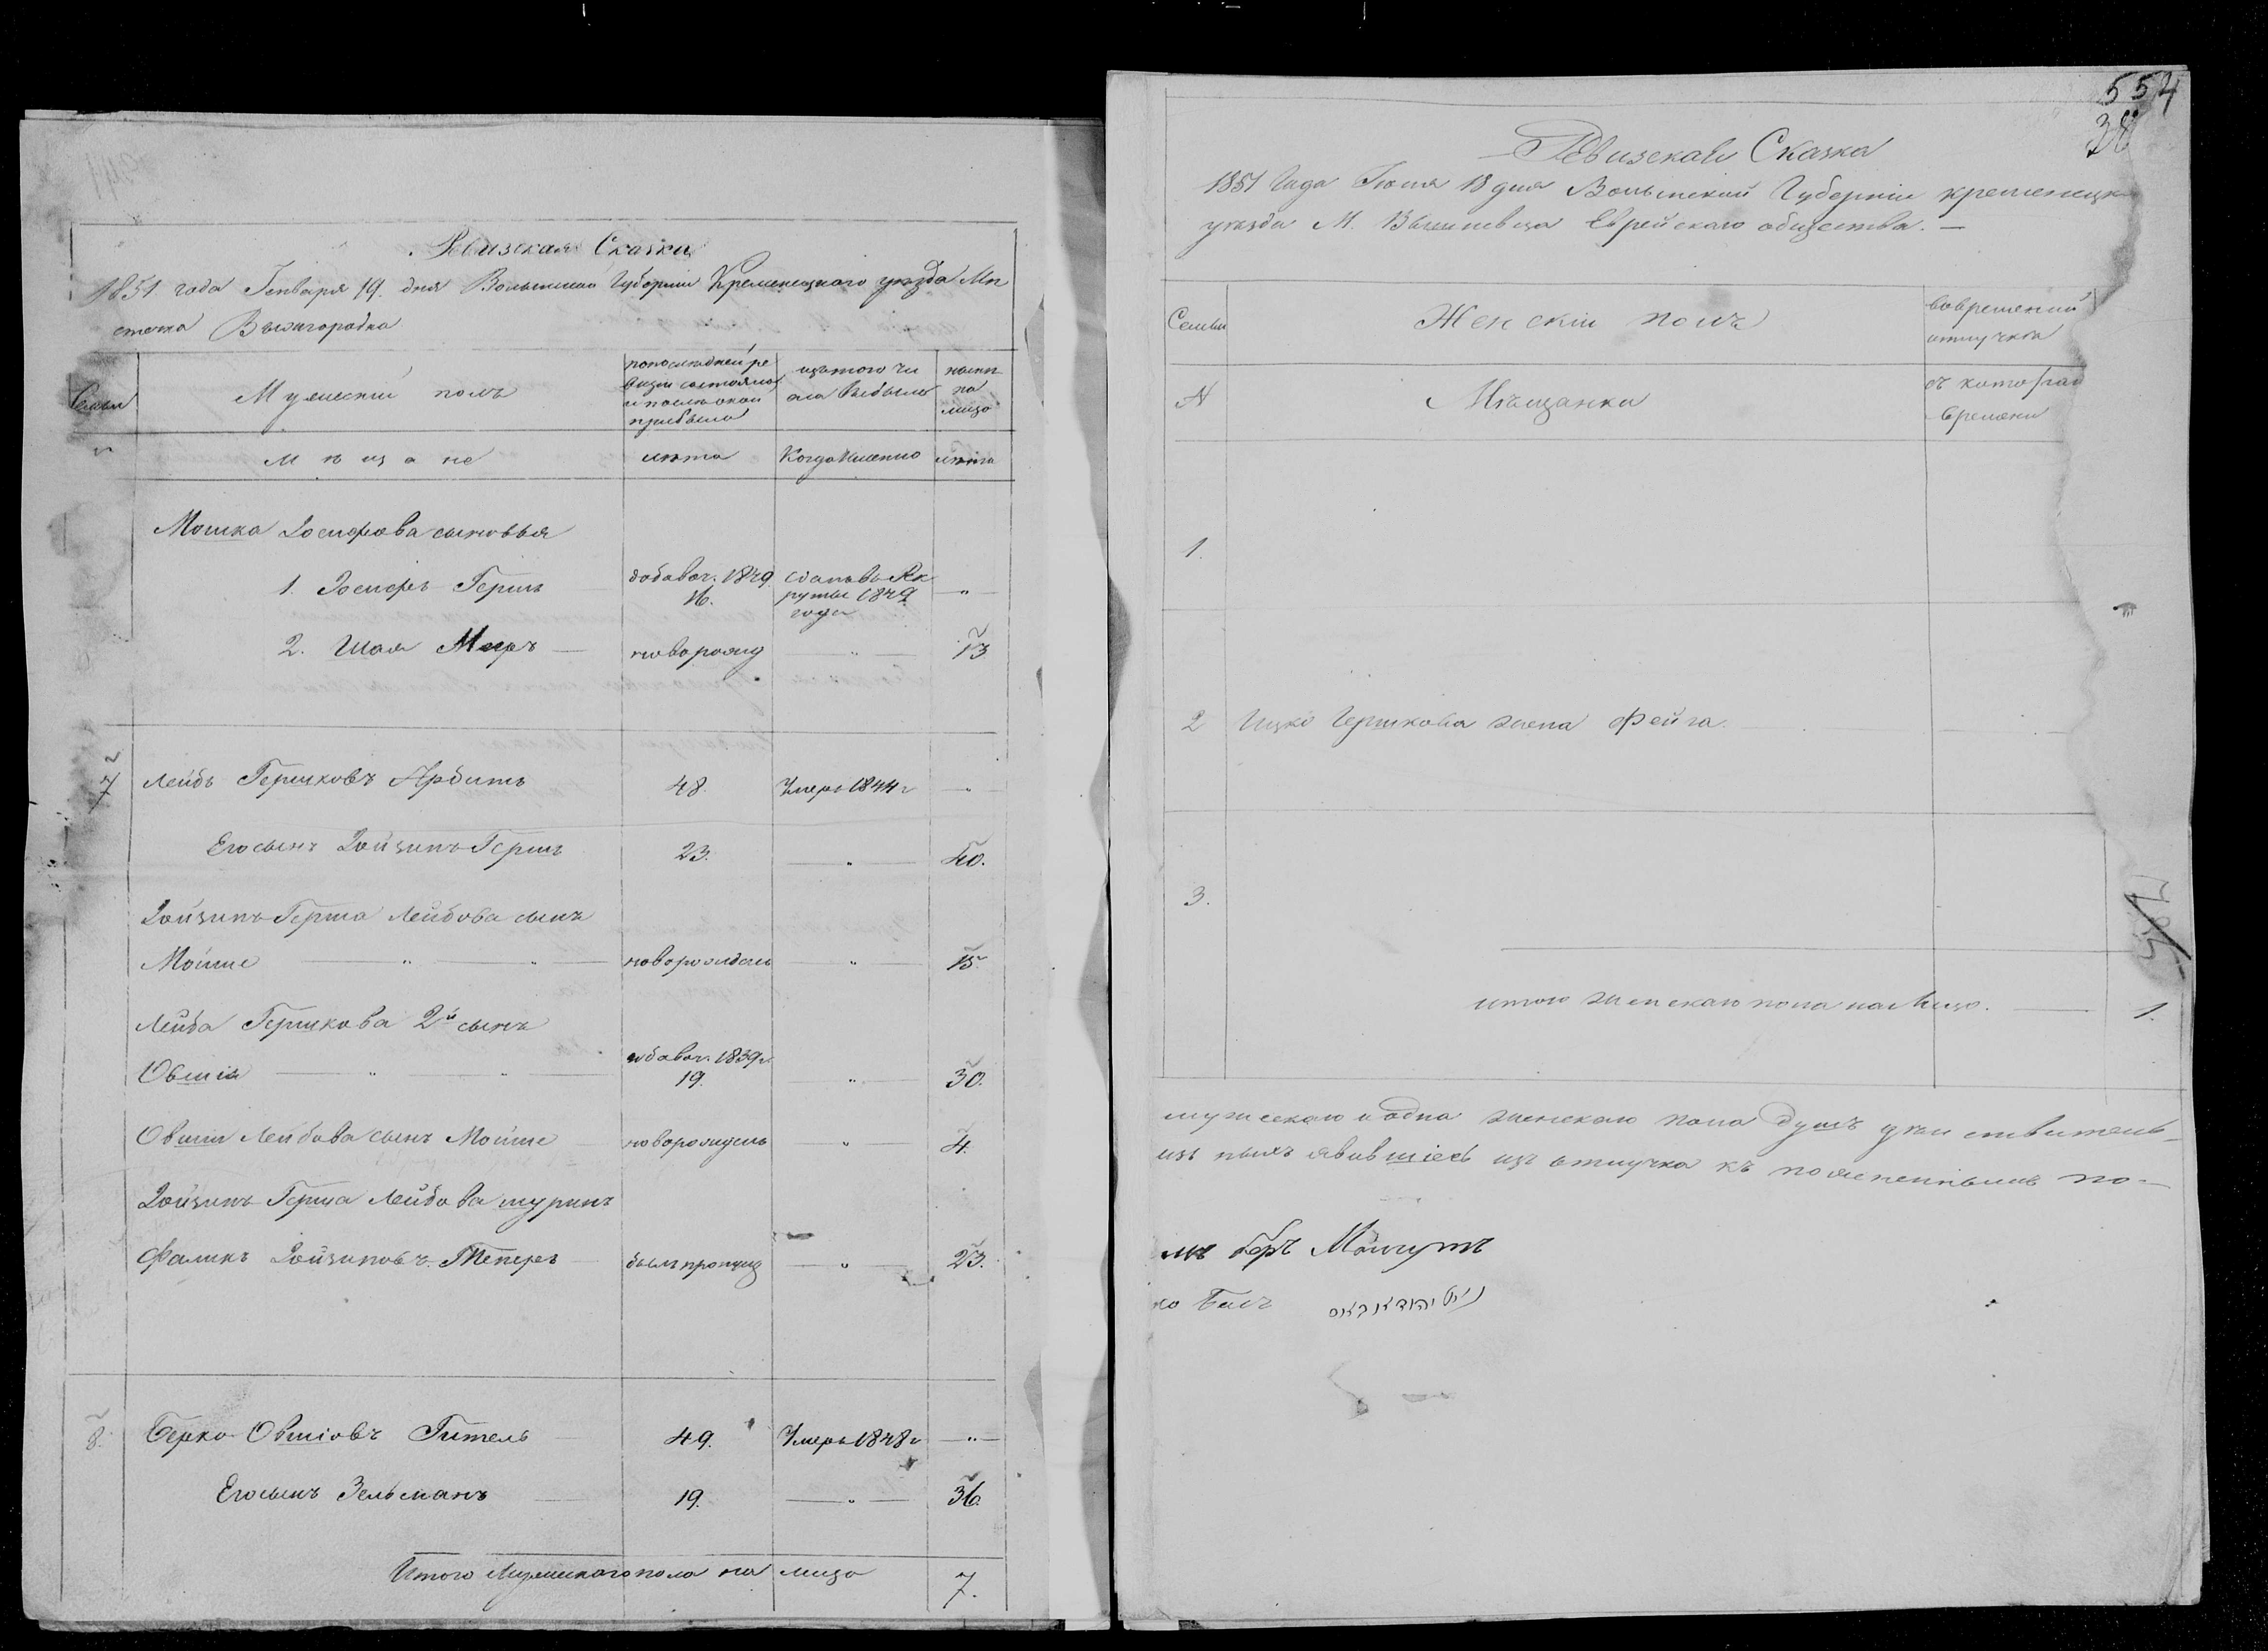 Ревизская Сказка
1851 года Генваря 19. дня Волынской Губерніи Кременецкаго уѣзда Мѣ
стечка Вышгородка
Семьи
Мужескій полъ
по последней ре
визіи состояло
и после оной
прибыло
изъ того чи
сла выбыло
ныне
на
лицо
Мѣщане
лѣта
Когда именно
лѣта
Мошка Іосифова сыновья
1. Іосифъ Гершъ добавоч. 1849. 16. сданъ въ Рк
руты 1849 года "
2. Шая Меер новорожд " 13
7 Лейбъ Гершковъ Арбитъ 48. Умеръ 1844 г "
Его сынъ Іойзипъ Гершъ 23. " 40.
Іойзипъ Герша Лейбова сынъ
Мойше " " новорожденъ " 15.
Лейба Гершкова 2й сынъ
Овшія " " добавоч. 1839 г. 19. " 30.
Овшіи Лейбова сынъ Мойше новорожденъ " 4.
Іойзипъ Герша Лейбова шуринъ
Фаликъ Іойзиповъ Теперъ былъ пропущ " 23.
8. Берко Овшіовъ Гитель 49. Умеръ 1848 г "
Его сынъ Зельманъ 19. " 36.
Итого Мужескаго пола на лицо 7.
554
38
Ревизская Сказка
1851 Года Іюня 18 дня Волынской Губерніи кременецка
уезда М. Вышневца Еврейскаго общества.
Семьи
Женскій полъ
во временной
отлучкѣ
N
Мѣщанки
съ котораго
времени
1.
2 Ицко Гершкова жена Фейга
3.
итого женскаго пола на Лицо. 1.
мужескаго и одна женскаго пола душъ
изъ ныхъ явившіесь изъ отлучка къ по
беръ Мойшутъ
ко Басъ